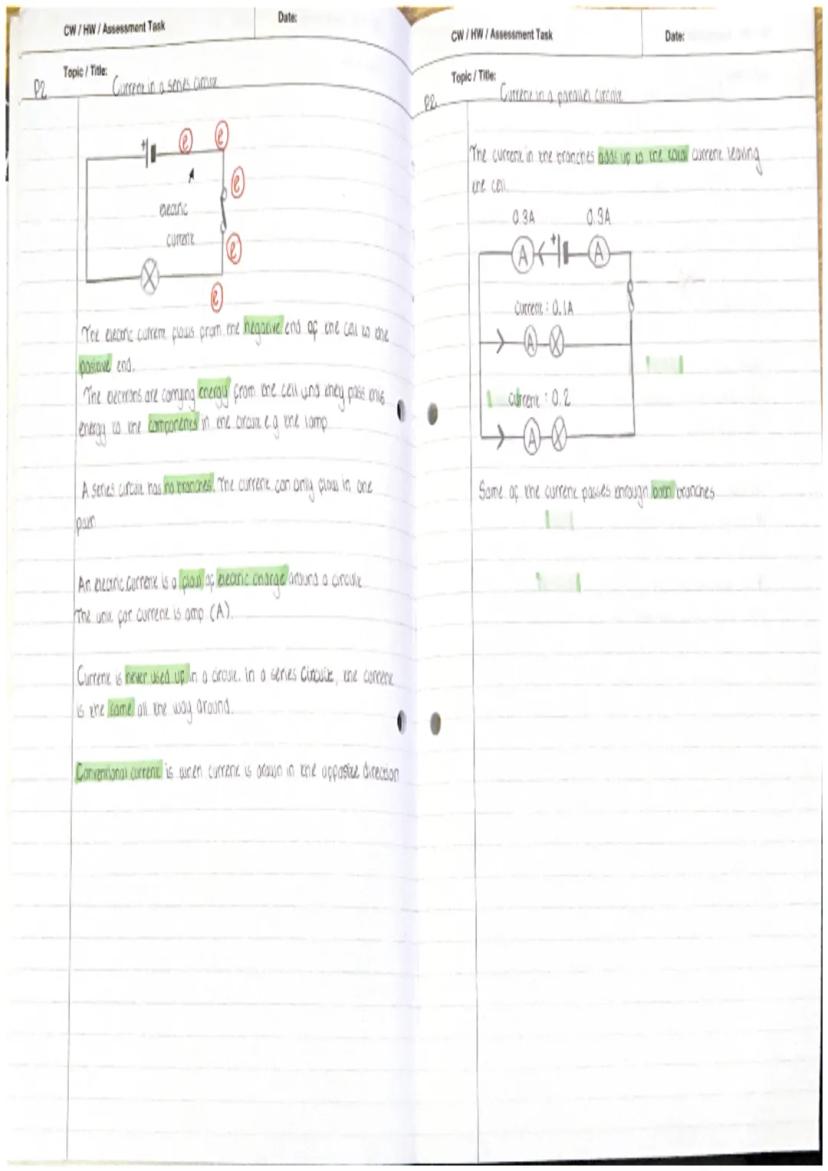 CW / HW / Assessment Task
Date:
Topic / Title:
P2
Current in a series circuit
+
e
e
e
e
e
electric
current
The electric current flows from the negative end of the cell to the
positive end.
The electrons are carrying energy from the cell and they pass this
energy to the components in the circuit e.g the lamp
A series circuit has no branches. The current can only flow in one
path
An electric current is a flow of electric charge around a circuit
The unit for current is amp (A).
Current is never used up in a circuit. In a series circuit, the current
is the same all the way around.
Conventional current is when current is drawn in the opposite direction
CW / HW / Assessment Task
Date:
Topic / Title:
P2
Current in a parallel circuit
The current in the branches adds up to the total current leaving
the cell
0.3A 0.3A
A + A
current : 0.1A
A
current : 0.2
A
Some of the current passes through both branches